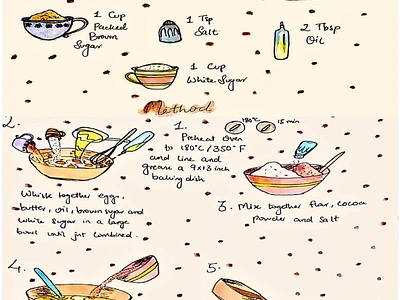 1 Cup
Packed
Brown
Sugar
1 Tsp
Salt
2 Tbsp
Oil
1 Cup
White Sugar
Method
1.
180°C
15 min
Preheat Oven
to 180°C/350°F
and line and
grease a 9x13 inch
baking dish
2.
Whisk together egg,
butter, oil, brown sugar and
white sugar in a large
bowl until just combined.
3. Mix together flour, cocoa
powder and salt
4.
5.